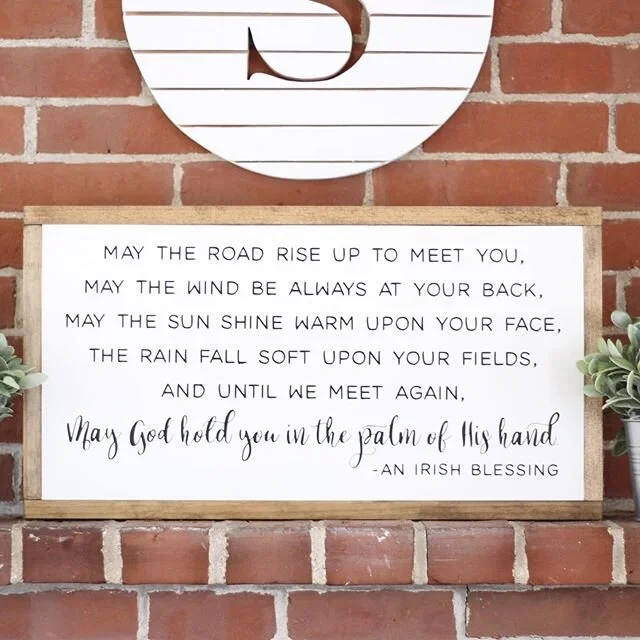 S
MAY THE ROAD RISE UP TO MEET YOU,
MAY THE WIND BE ALWAYS AT YOUR BACK,
MAY THE SUN SHINE WARM UPON YOUR FACE,
THE RAIN FALL SOFT UPON YOUR FIELDS,
AND UNTIL WE MEET AGAIN,
May God hold you in the palm of His hand.
-AN IRISH BLESSING